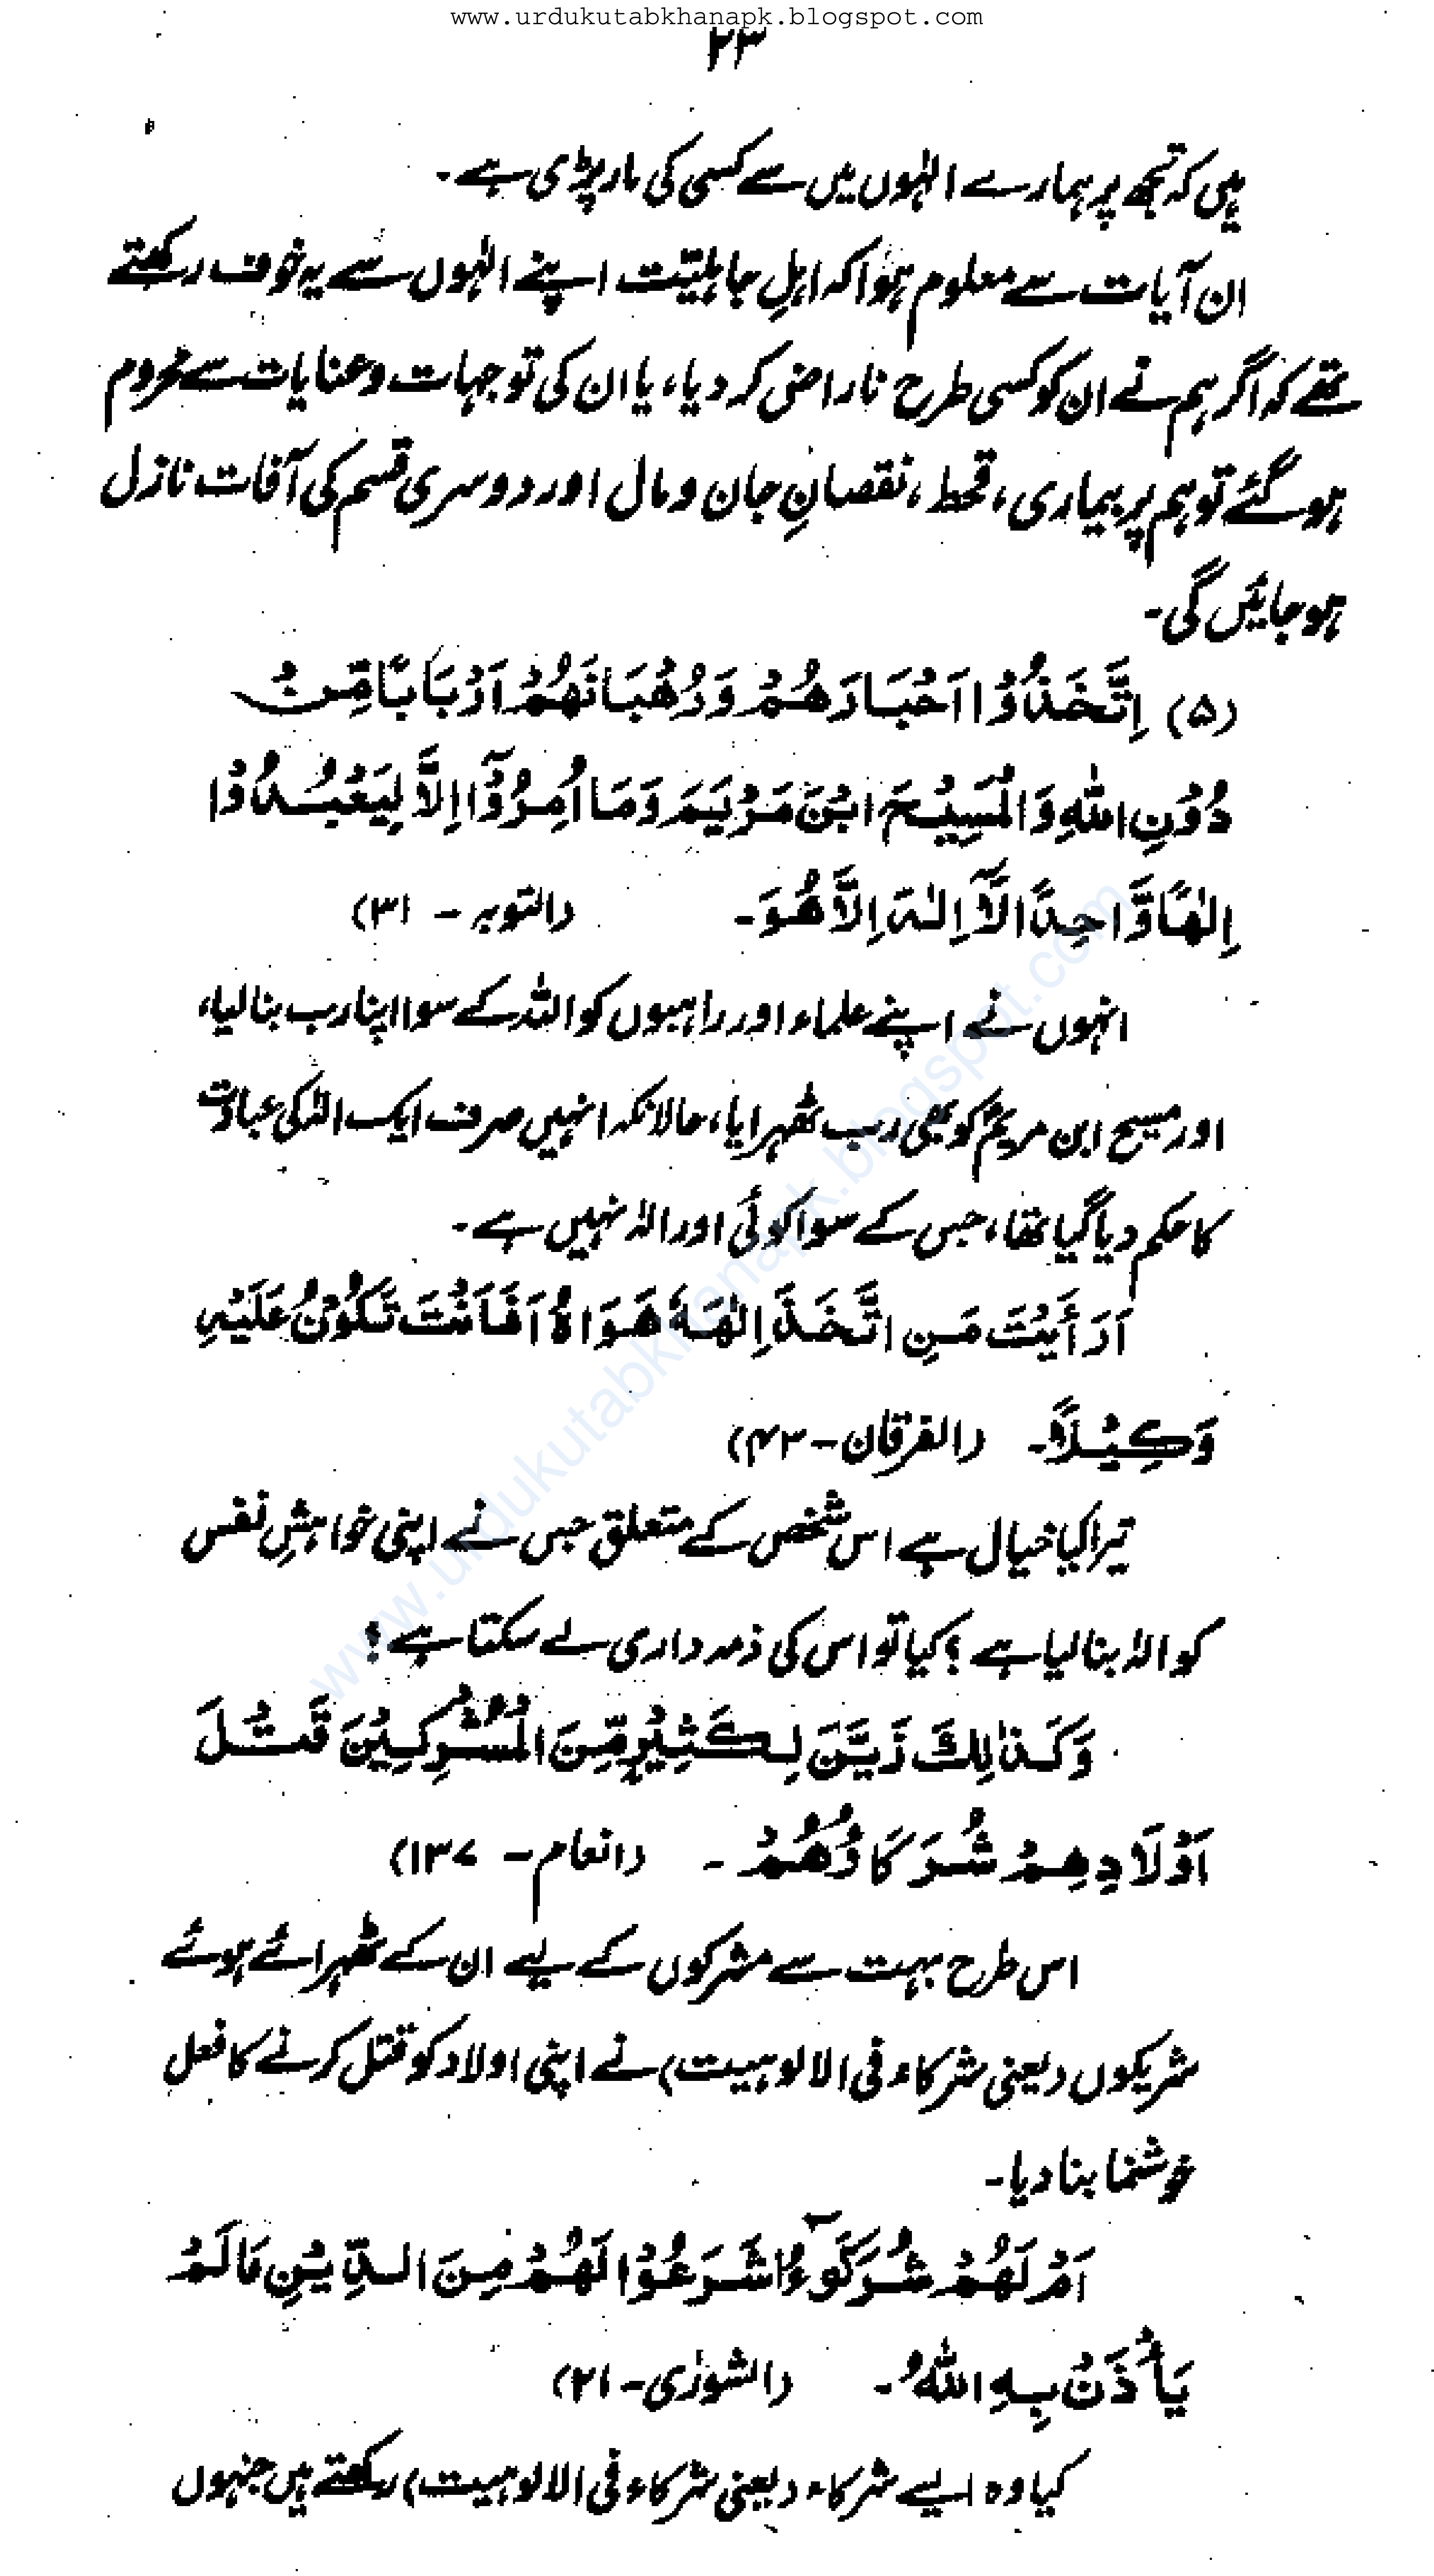 www.urdukutabkhanapk.blogspot.com
۲۳
ہیں کہ تجھ پر ہمارے الٰہوں میں سے کسی کی مار پڑی ہے۔
ان آیات سے معلوم ہوا کہ اہلِ جاہلیّت اپنے الٰہوں سے یہ خوف رکھتے
تھے کہ اگر ہم نے ان کو کسی طرح ناراض کر دیا، یا ان کی توجہات و عنایات سے محروم
ہو گئے تو ہم پر بیماری، قحط، نقصانِ جان و مال اور دوسری قسم کی آفات نازل
ہو جائیں گی۔
(۵) اِتَّخَذُوْا اَحْبَارَهُمْ وَرُهْبَانَهُمْ اَرْبَابًا مِّنْ
دُوْنِ اللّٰهِ وَالْمَسِيْحَ ابْنَ مَرْيَمَ وَمَا اُمِرُوْٓا اِلَّا لِيَعْبُدُوْا
اِلٰهًا وَّاحِدًا لَآ اِلٰهَ اِلَّا هُوَ۔ (التوبہ - ۳۱)
انہوں نے اپنے علماء اور راہبوں کو اللہ کے سوا اپنا رب بنا لیا،
اور مسیح ابن مریمؑ کو بھی رب ٹھہرایا، حالانکہ انہیں صرف ایک الٰہ کی عبادت
کا حکم دیا گیا تھا، جس کے سوا کوئی اور الٰہ نہیں ہے۔
اَرَأَيْتَ مَنِ اتَّخَذَ اِلٰهَهٗ هَوَاهُ اَفَاَنْتَ تَكُوْنُ عَلَيْهِ
وَكِيْلًا۔ (الفرقان - ۴۳)
تیرا کیا خیال ہے اس شخص کے متعلق جس نے اپنی خواہشِ نفس
کو الٰہ بنا لیا ہے؟ کیا تو اس کی ذمہ داری لے سکتا ہے؟
وَكَذٰلِكَ زَيَّنَ لِكَثِيْرٍ مِّنَ الْمُشْرِكِيْنَ قَتْلَ
اَوْلَادِهِمْ شُرَكَاؤُهُمْ۔ (انعام - ۱۳۷)
اس طرح بہت سے مشرکوں کے لیے ان کے ٹھہرائے ہوئے
شریکوں (یعنی شرکاء فی الالوہیت) نے اپنی اولاد کو قتل کرنے کا فعل
خوشنما بنا دیا۔
اَمْ لَهُمْ شُرَكٰٓؤُا شَرَعُوْا لَهُمْ مِنَ الدِّيْنِ مَا لَمْ
يَأْذَنْ بِهِ اللّٰهُ۔ (الشورٰی - ۲۱)
کیا وہ ایسے شرکاء (یعنی شرکاء فی الالوہیت) رکھتے ہیں جنہوں
www.urdukutabkhanapk.blogspot.com